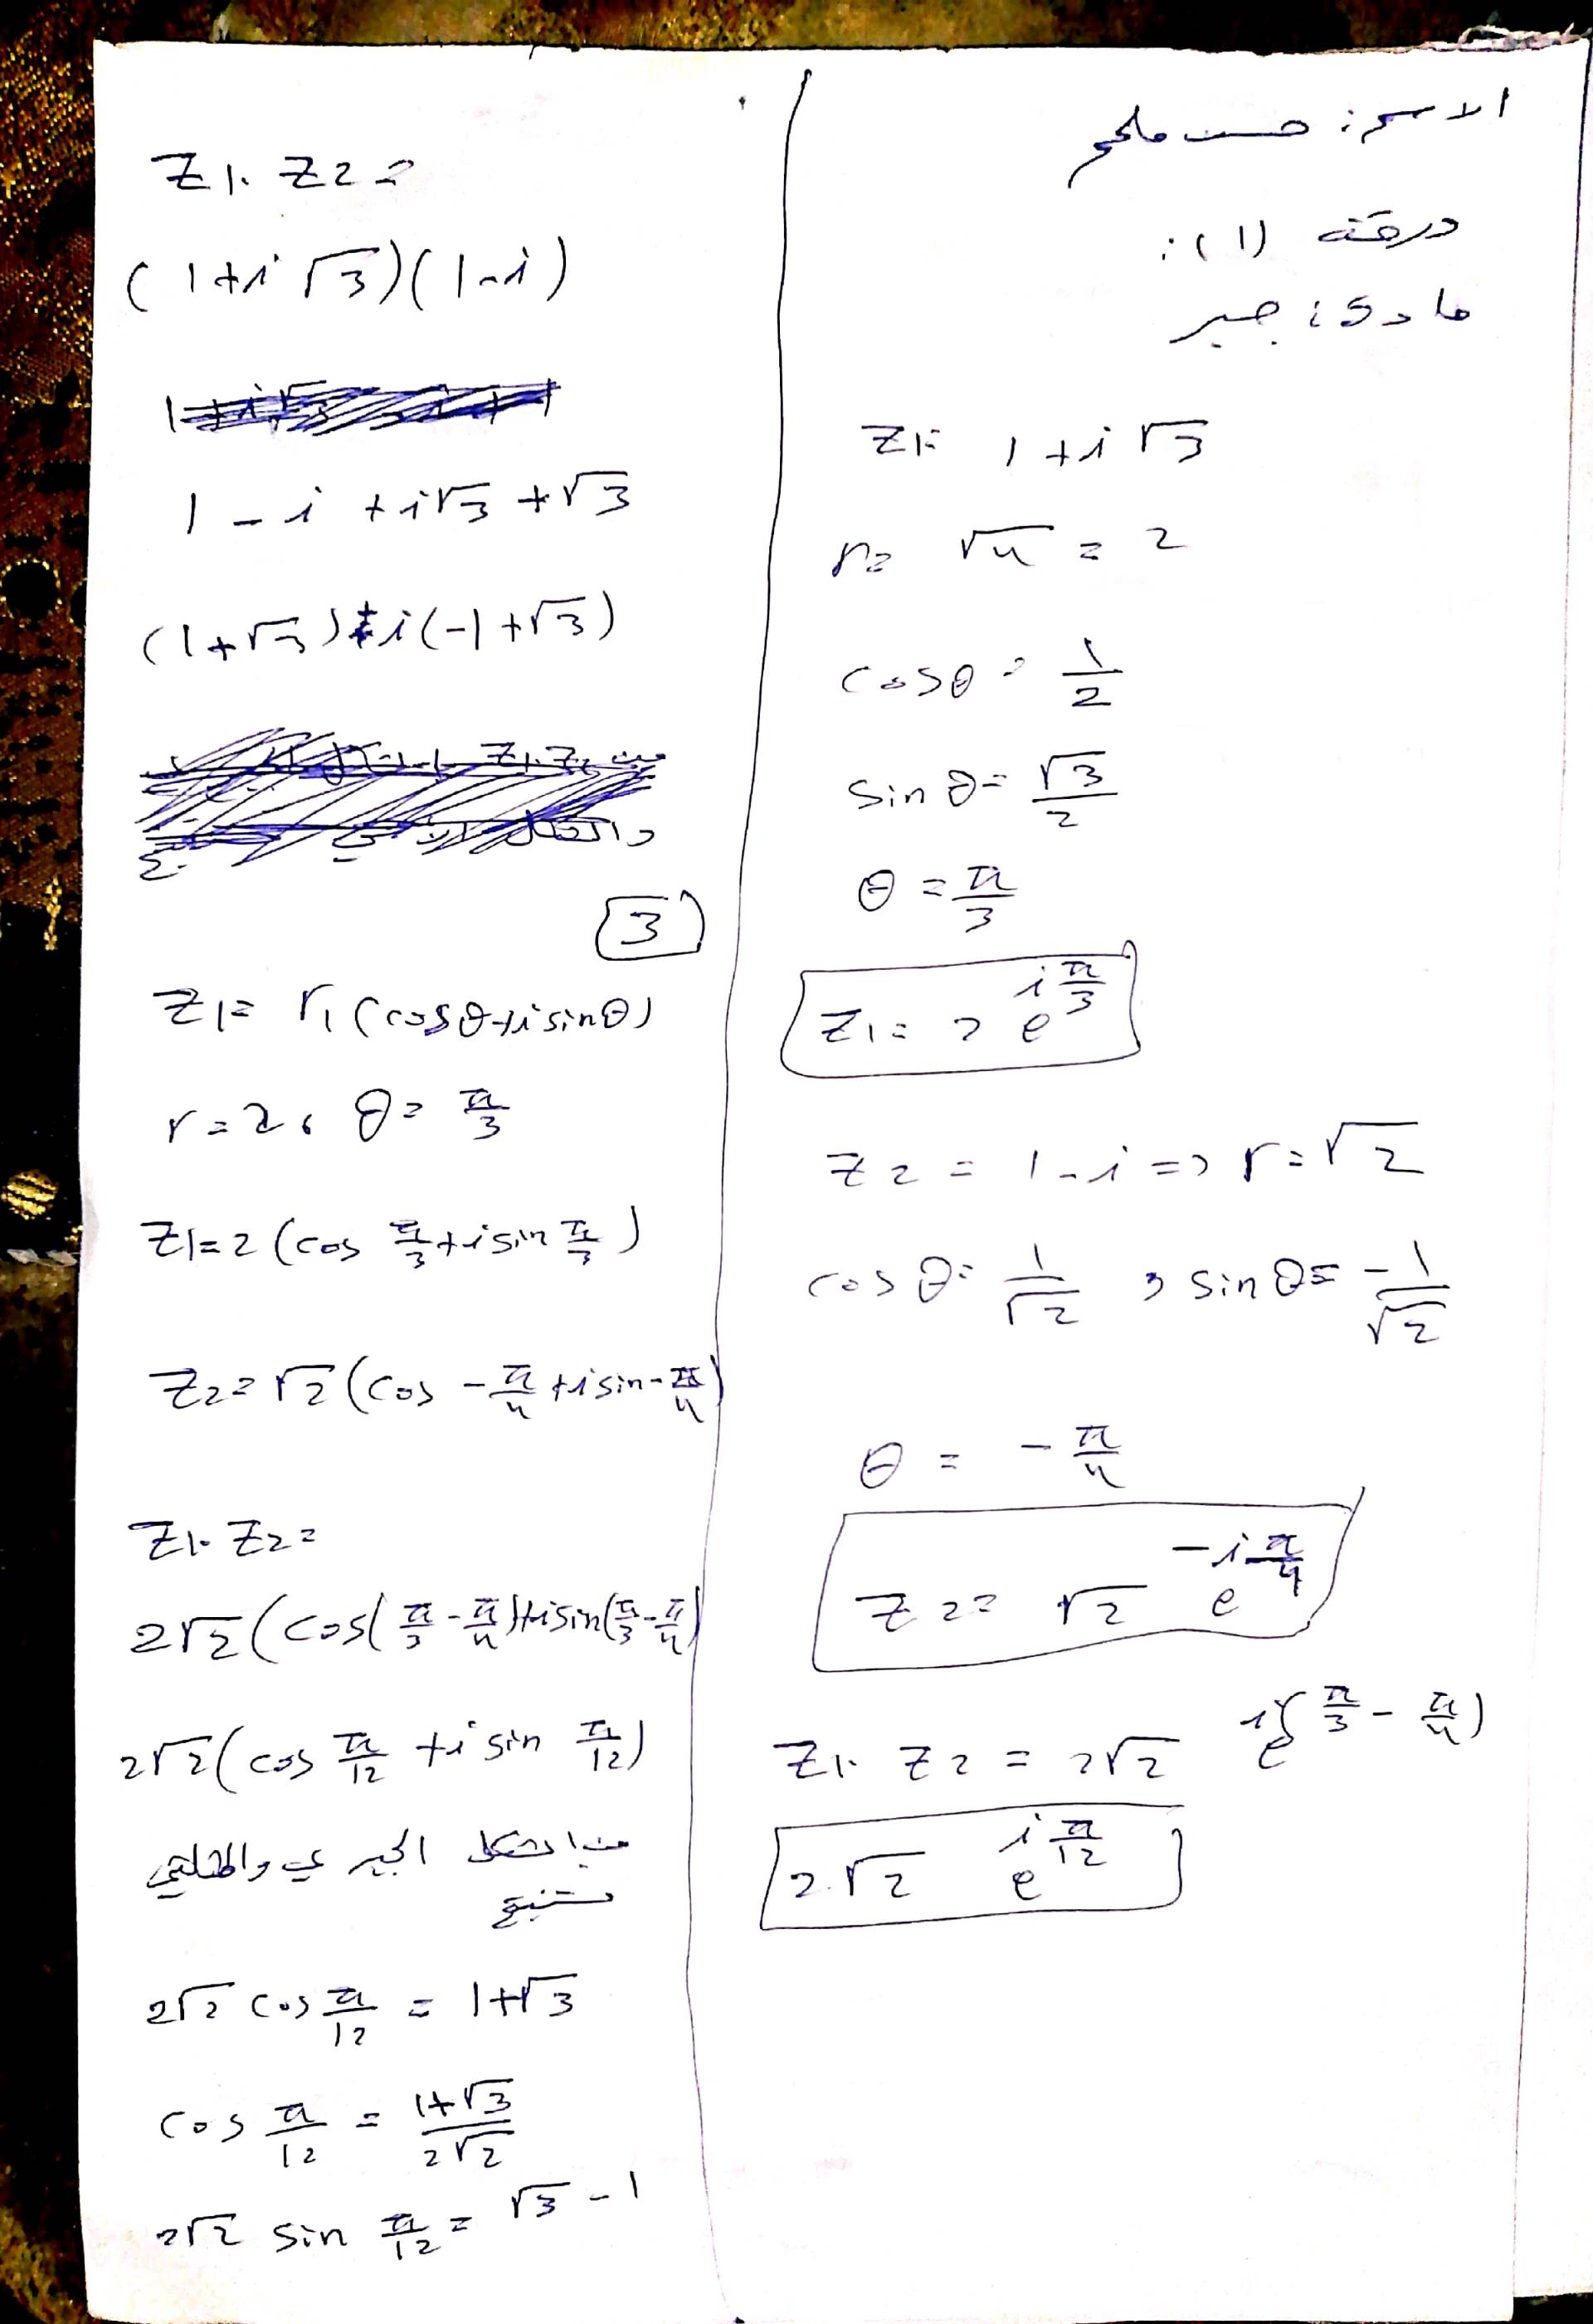 الاسم: حسن ملحم
ورقة (1):
مادة: جبر
Z1= 1+i√3
r= √4 = 2
cosθ = 1/2
sin θ= √3/2
θ = π/3
Z1= 2 e^(iπ/3)
Z2 = 1-i => r=√2
cos θ= 1/√2 , sin θ= -1/√2
θ = -π/4
Z2= √2 e^(-iπ/4)
Z1. Z2 = 2√2 e^(i(π/3 - π/4))
2√2 e^(iπ/12)
Z1. Z2 =
(1+i√3)(1-i)
1 - i + i√3 + √3
(1+√3)+i(-1+√3)
3
Z1= r1 (cosθ+isinθ)
r=2, θ= π/3
Z1=2 (cos π/3 +isin π/3)
Z2= √2 (cos -π/4 +isin -π/4)
Z1. Z2=
2√2 (cos(π/3 - π/4)+isin(π/3 - π/4)
2√2 (cos π/12 +i sin π/12)
من الشكل الجبري والمثلثي
نستنتج
2√2 cos π/12 = 1+√3
cos π/12 = (1+√3)/(2√2)
2√2 sin π/12 = √3 - 1